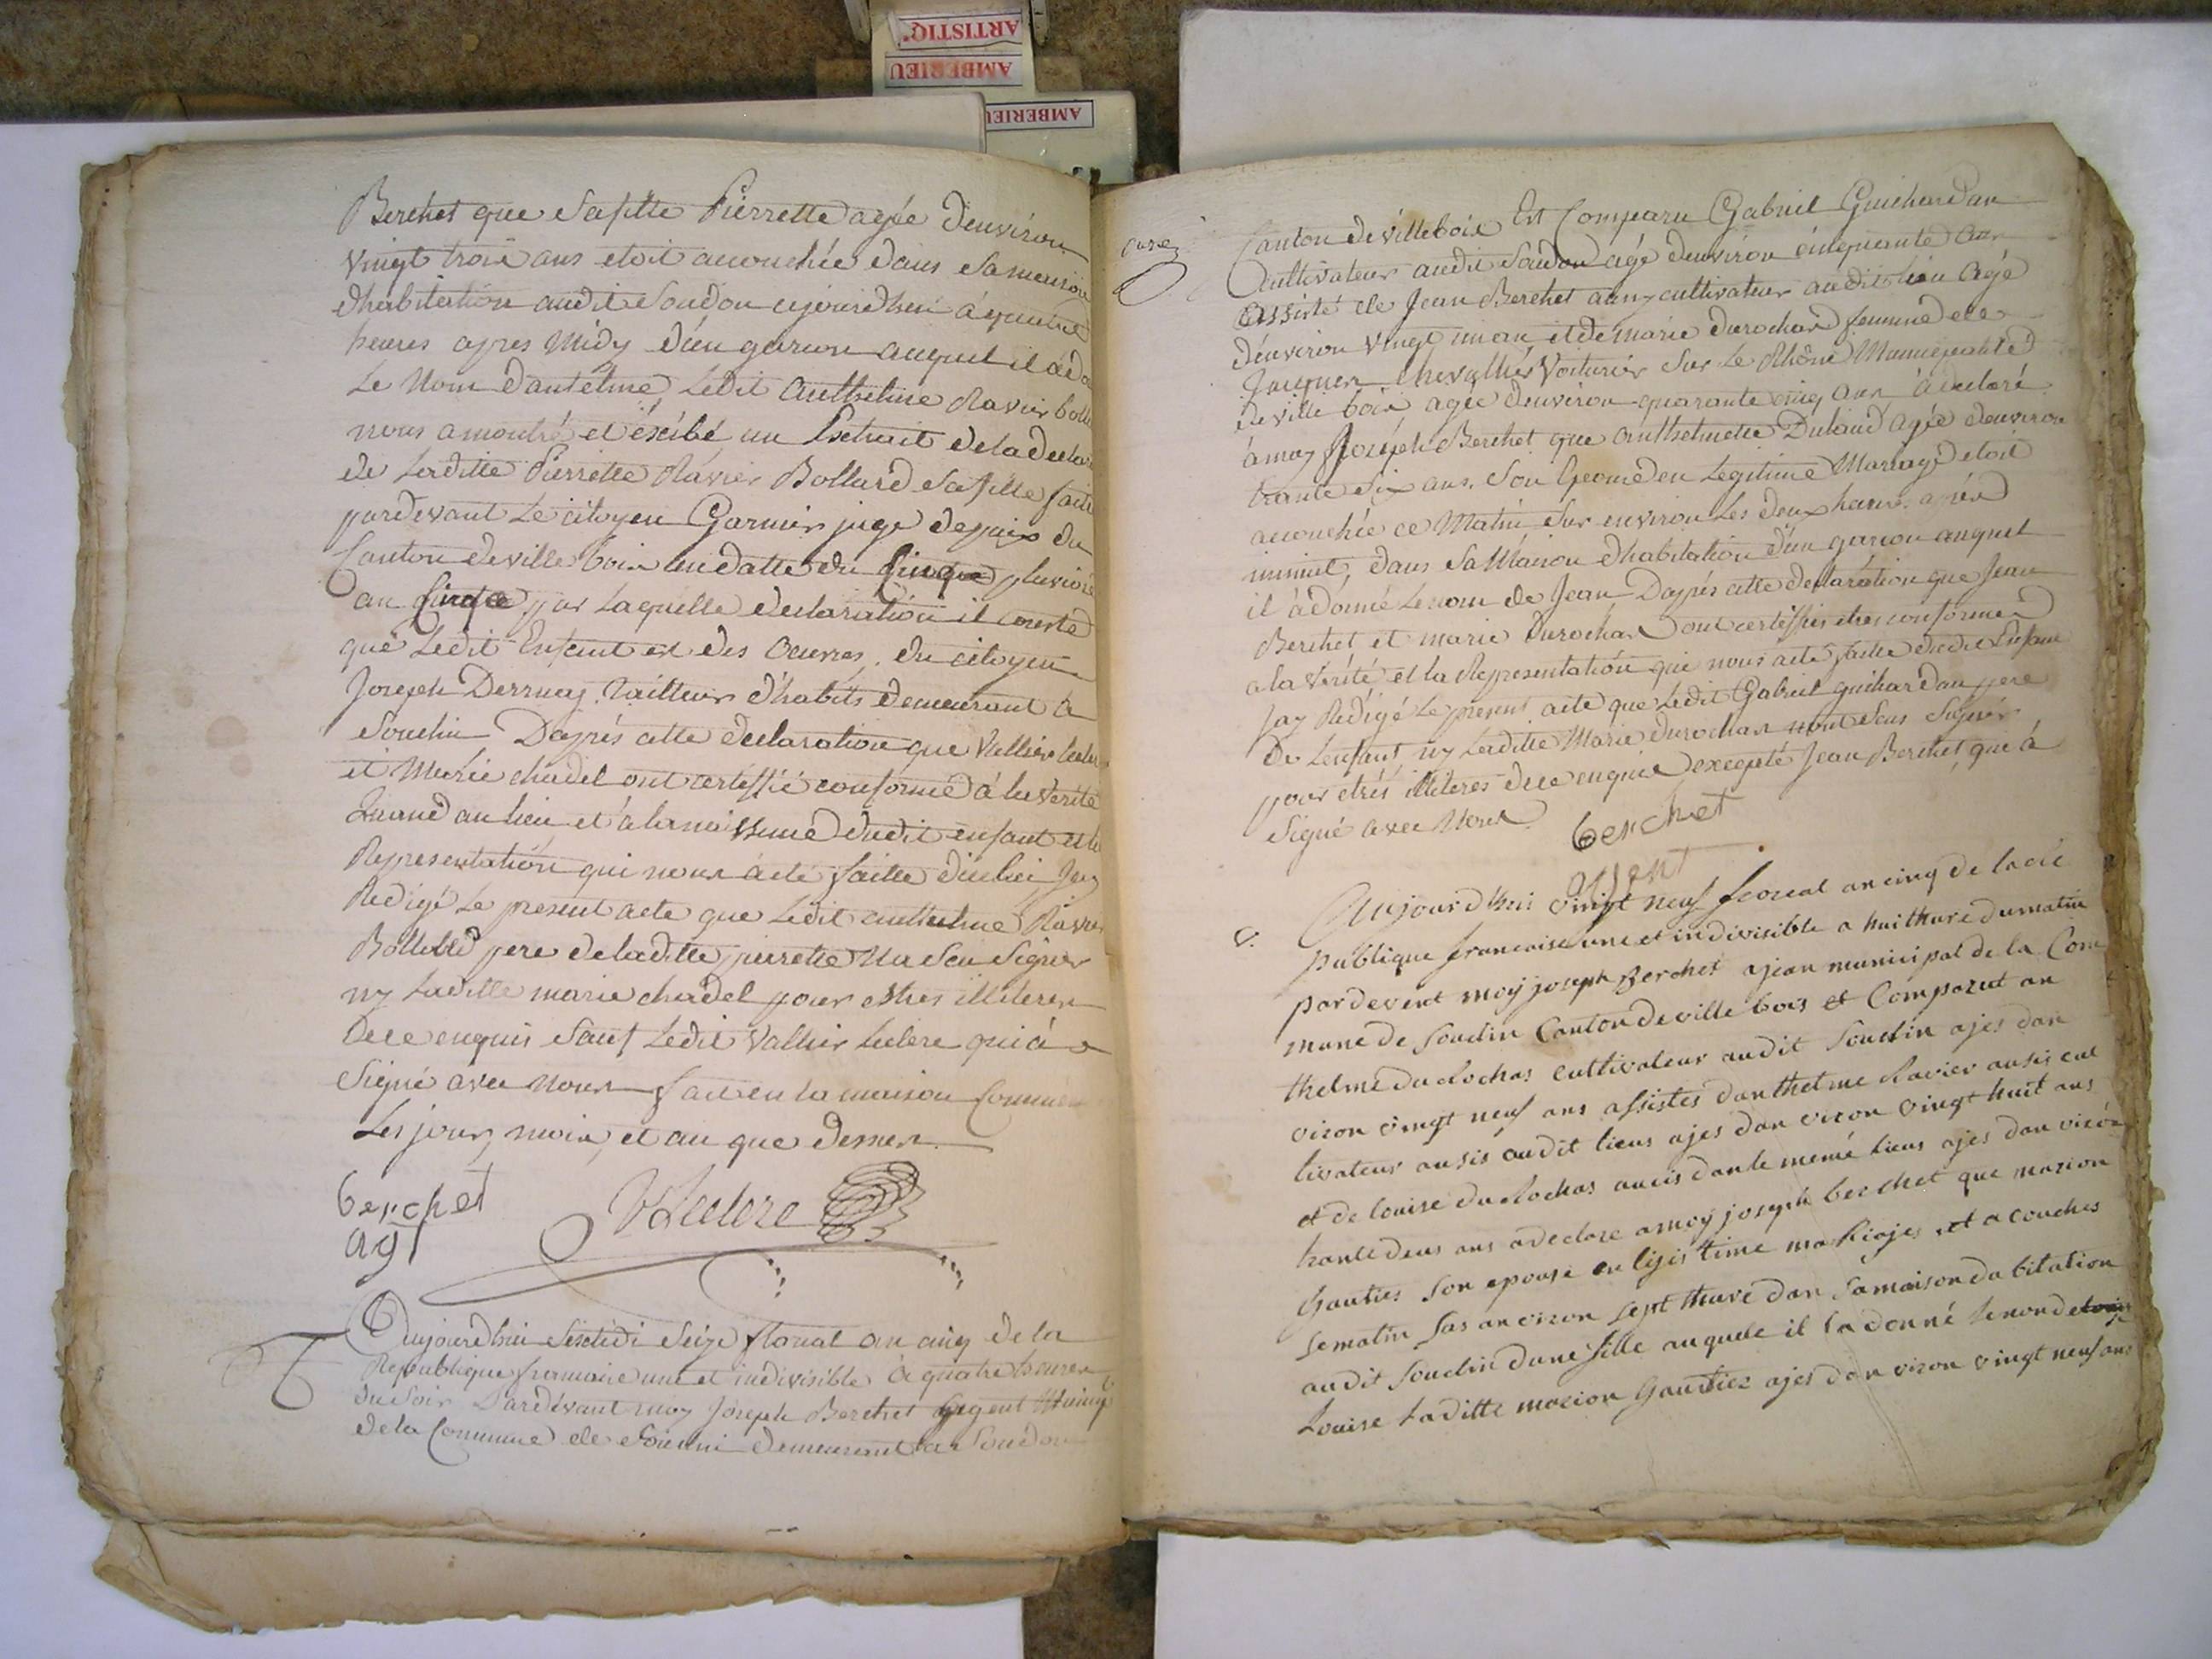 ARTISTIQ.
AMBERIEU
AMBERIEU
Berchet que Sa fille Pierrette agée d'environ
vingt trois ans etoit accouchée dans Sa maison
d'habitation audit Soudon cejourd'hui à quatre
heures apres Midy d'un garcon auquel il a do
Le Nom dantelme, Ledit Anthelme Ravier boll
nous a montré et éxibé un Extrait de la declar
de Laditte Pierrette Ravier Bollard Sa fille faite
pardevant Le citoyen Garnier juge depaix du
Canton deville bois en datte du Cinque pluviose
an Cinque par Laquelle declaration il conste
que Ledit Enfant est des Oeuvres du citoyen
Joseph Derruaz tailleur d'habits demeurant a
Souclin Daprés cette declaration que Vallier lecler
et Marie chadel ont certiffié conforme à la verité
quand au lieu et à la naissance dudit enfant et la
Representation qui nous à eté faitte dicelui Jay
Redigé Le present acte que Ledit anthelme Ravier
Bollard pere de laditte pierrette Na Seu Signer
ny Laditte marie chadel pour estres illiteres
dece enquis Sauf Ledit Vallier Leclerc qui à
Signé avec Nous fait en la maison Commune
Les jour, mois, et an que dessus.
berchet
agt
VLeclerc
Aujourdhui Sextidi Seize floreal an cinq de la
Republique francaise une et indivisible à quatre heures
du Soir Pardévant moy Joseph Berchet Agent Munip
de la Commune de Souclin demeurant a Soudon
onze
Canton de villebois Est Comparu Gabriel Guichardan
Cultivateur audit Soudon âgé denviron cinquante ans
assisté de Jean Berchet aussy cultivateur audit lieu Agé
denviron vingt un an et de marie durochard femme de
Jacques Chevallier Voiturier Sur Le Rhône Municipalité
de ville bois agée denviron quarante cinq ans à declaré
à moy Joseph Berchet que Anthelmette Duland Agée denviron
trante Six ans. Son Epouse en Legitime Mariage etoit
accouchée ce Matin Sur environ Les deux heures aprés
minuit, dans Sa Maison d'habitation d'un garcon auquel
il à donné Le nom de Jean Daprés cette declaration que Jean
Berchet et marie Durochar ont certiffiés etres conforme
a la vérité et la Representation qui nous a eté faitte dudit Enfant
Jay Redigé Le present acte que Ledit Gabriel guichardan pere
de Lenfant ny Laditte Marie durochar nont Seus Signer
pour etrés illiteres dece enquis excepté Jean Berchet, qui à
Signé avec Nous
berchet
agent
Aujourdhuis vingt neuf floreal an cinq de la ré
publique francaise une et indivisible a huit hure du matin
par devent moy joseph Berchet ajean municipal de la Com
mune de Souclin Canton de ville bois et Comparut an
thelme du Rochas cultivateur audit Souclin ajes dan
viron vingt neuf ans assistes danthelme Ravier ausis cul
tivateur ausis oudit lieus ajes dan viron vingt huit ans
et de louise du Rochas aucis dan le meme lieus ajes dan viron
trante deus ans a declare a moy joseph berchet que marion
Gautier Son epouse en lijis time mariajes et a couches
Se matin Sus anviron Sept hure dan Sa maison da bitation
audit Souclin dune fille auquele il la donné Le non de
Louise Laditte marion Gautier ajes dan viron vingt neuf ans